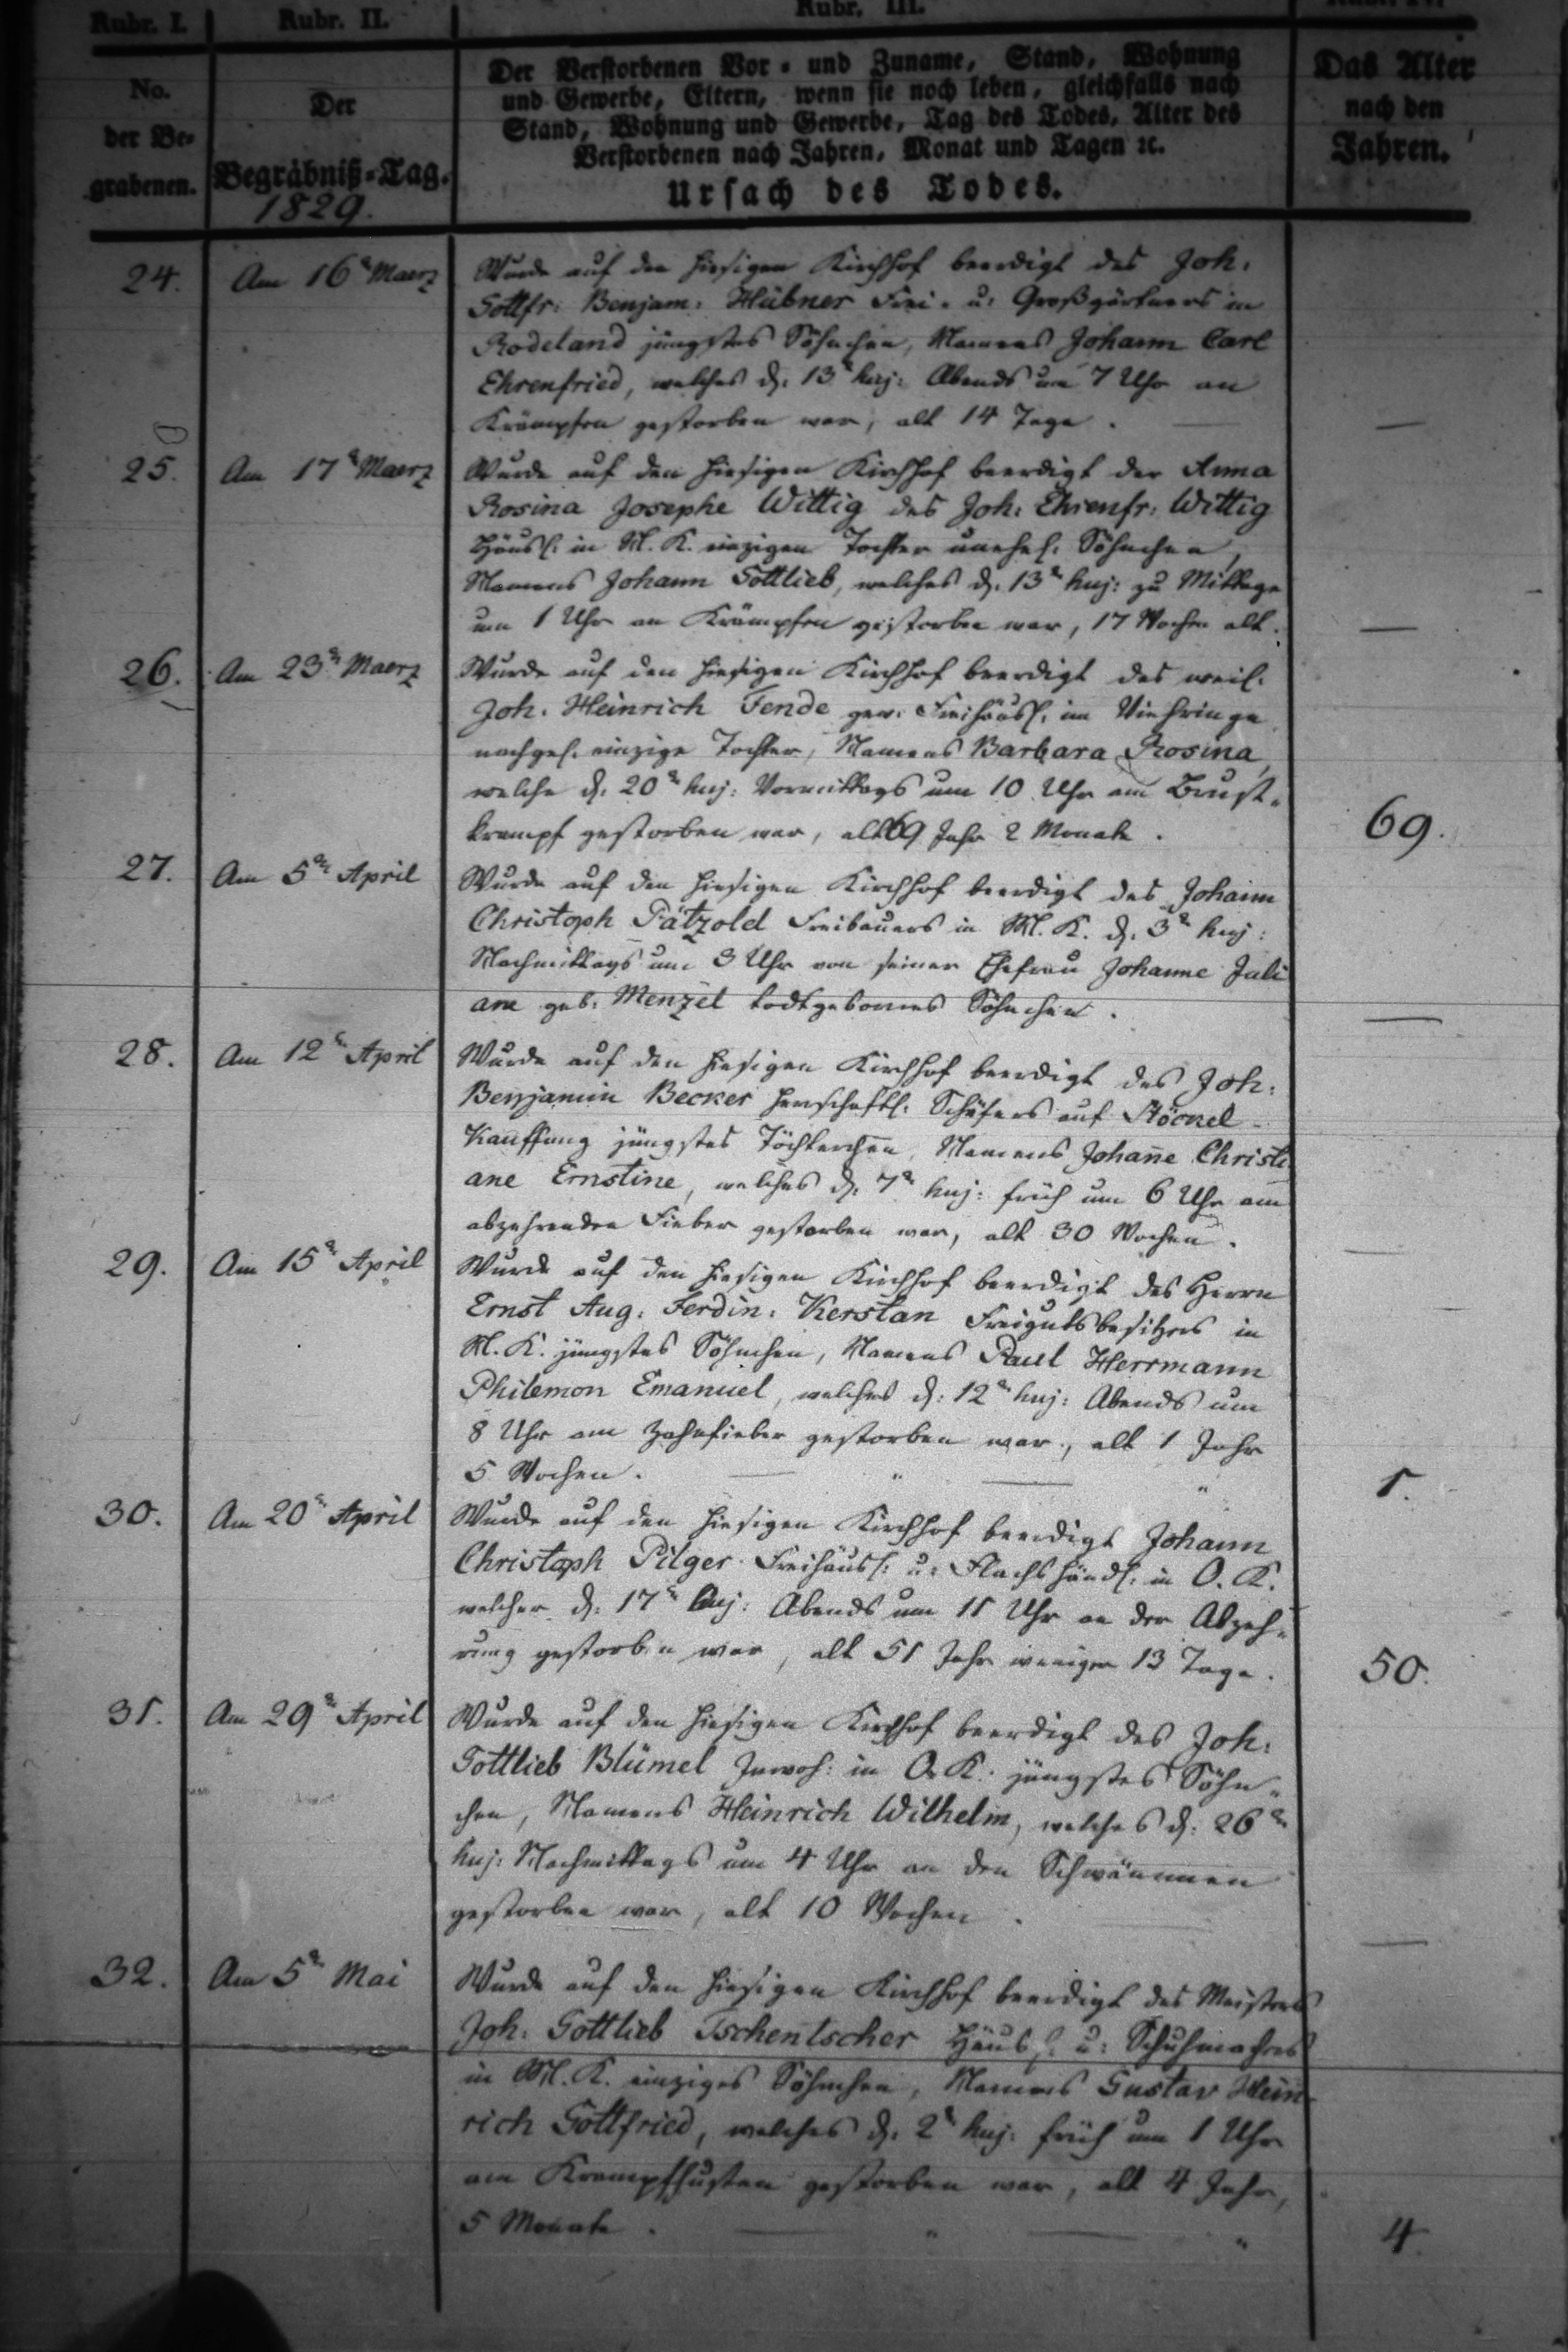 Rubr. I. Rubr. II. Rubr. III. Rubr. IV.
No.
der Be-
grabenen.
Der
Begräbniß-Tag.
1829.
Der Verstorbenen Vor- und Zuname, Stand, Wohnung
und Gewerbe, Eltern, wenn sie noch leben, gleichfalls nach
Stand, Wohnung und Gewerbe, Tag des Todes, Alter des
Verstorbenen nach Jahren, Monat und Tagen ꝛc.
Ursach des Todes.
Das Alter
nach den
Jahren.
24. Am 16t Maerz Wurde auf den hiesigen Kirchhof beerdigt des Joh.
Gottfr: Benjam: Hübner Frei- u: Großgärtners in
Rodeland jüngstes Söhnchen, Namens Johann Carl
Ehrenfried, welches d. 13t huj: Abends um 7 Uhr an
Krämpfen gestorben war, alt 14 Tage. —
25. Am 17t Maerz Wurde auf den hiesigen Kirchhof beerdigt der Anna
Rosina Josephe Wittig des Joh: Ehrenfr: Wittig
Häusl: in M. K. einzigen Tochter unehel. Söhnchen,
Namens Johann Gottlieb, welches d. 13t huj: zu Mittage
um 1 Uhr an Krämpfen gestorben war, 17 Wochen alt. —
26. Am 23t Maerz Wurde auf den hiesigen Kirchhof beerdigt des weil.
Joh. Heinrich Fende gew: Freihäusl. im Viehringe
nachgel. einzige Tochter, Namens Barbara Rosina,
welche d. 20t huj: Vormittags um 10 Uhr am Brust-
krampf gestorben war, alt 69 Jahr 2 Monate. 69.
27. Am 5t April Wurde auf den hiesigen Kirchhof beerdigt des Johann
Christoph Pätzold Freibauers in M. K. d. 3t huj:
Nachmittags um 3 Uhr von seiner Ehefrau Johanne Juli
ane geb: Menzel todtgebornes Söhnchen. —
28. Am 12t April Wurde auf den hiesigen Kirchhof beerdigt des Joh:
Benjamin Becker herrschaftl: Schäfers auf Stöckel-
Kauffung jüngstes Töchterchen, Namens Johañe Christi
ane Ernstine, welches d. 7t huj: früh um 6 Uhr am
abzehrenden Fieber gestorben war, alt 30 Wochen. —
29. Am 15t April Wurde auf den hiesigen Kirchhof beerdigt des Herrn
Ernst Aug: Ferdin: Kerstan Freigutsbesitzers in
M. K. jüngstes Söhnchen, Namens Paul Herrmann
Philemon Emanuel, welches d: 12t huj: Abends um
8 Uhr am Zahnfieber gestorben war, alt 1 Jahr
5 Wochen. 1.
30. Am 20t April Wurde auf den hiesigen Kirchhof beerdigt Johann
Christoph Pilger Freihäusl: u: Flachshändl: in O. K.
welcher d: 17t huj: Abends um 11 Uhr an der Abzeh-
rung gestorben war, alt 51 Jahr weniger 13 Tage. 50.
31. Am 29t April Wurde auf den hiesigen Kirchhof beerdigt des Joh:
Gottlieb Blümel Inwoh: in O. K. jüngstes Söhn-
chen, Namens Heinrich Wilhelm, welches d: 26t
huj: Nachmittags um 4 Uhr an den Schwämmen
gestorben war, alt 10 Wochen. —
32. Am 5t Mai Wurde auf den hiesigen Kirchhof beerdigt des Meisters
Joh: Gottlieb Tschentscher Häusl: u: Schuhmachers
in M. K. einziges Söhnchen, Namens Gustav Hein-
rich Gottfried, welches d. 2t huj: früh um 1 Uhr
am Krampfhusten gestorben war, alt 4 Jahr,
5 Monate. 4